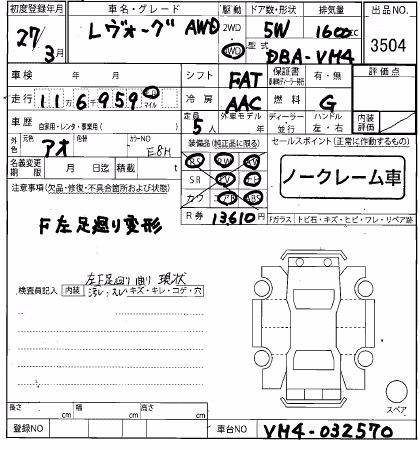 初度登録年月 車名・グレード 駆動 ドア数・形状 排気量 出品NO
27/3月 レヴォーグ AWD 2WD 4WD 5W 1600cc 3504
型式 DBA-VM4
車検 年 月 シフト FAT 保証書 有・無 評価点
走行 11万6千959 km マイル 冷房 AAC 燃料 G
車歴 自家用・レンタ・事業用( ) 定員 5人 外車モデル 年 ディーラー 並行 ハンドル 左・右 内装評価
外色 アオ 色替 カラーNO E8H 装備品(純正品に限る) セールスポイント(正常に作動するもの)
名義変更期限 月 日迄 積載 t
PS PW
SR
カワ ABS
ノークレーム車
注意事項(欠品・修復・不具合箇所および状態)
R券 13,610円
F左足廻り変形
Fガラス トビ石・キズ・ヒビ・ワレ・リペア跡
左F足廻り曲り 現状
検査員記入 内装 汚レ・スレ・キズ・キレ・コゲ・穴
スペア
長さ cm 幅 cm 高さ cm
登録NO 車台NO VM4-032570